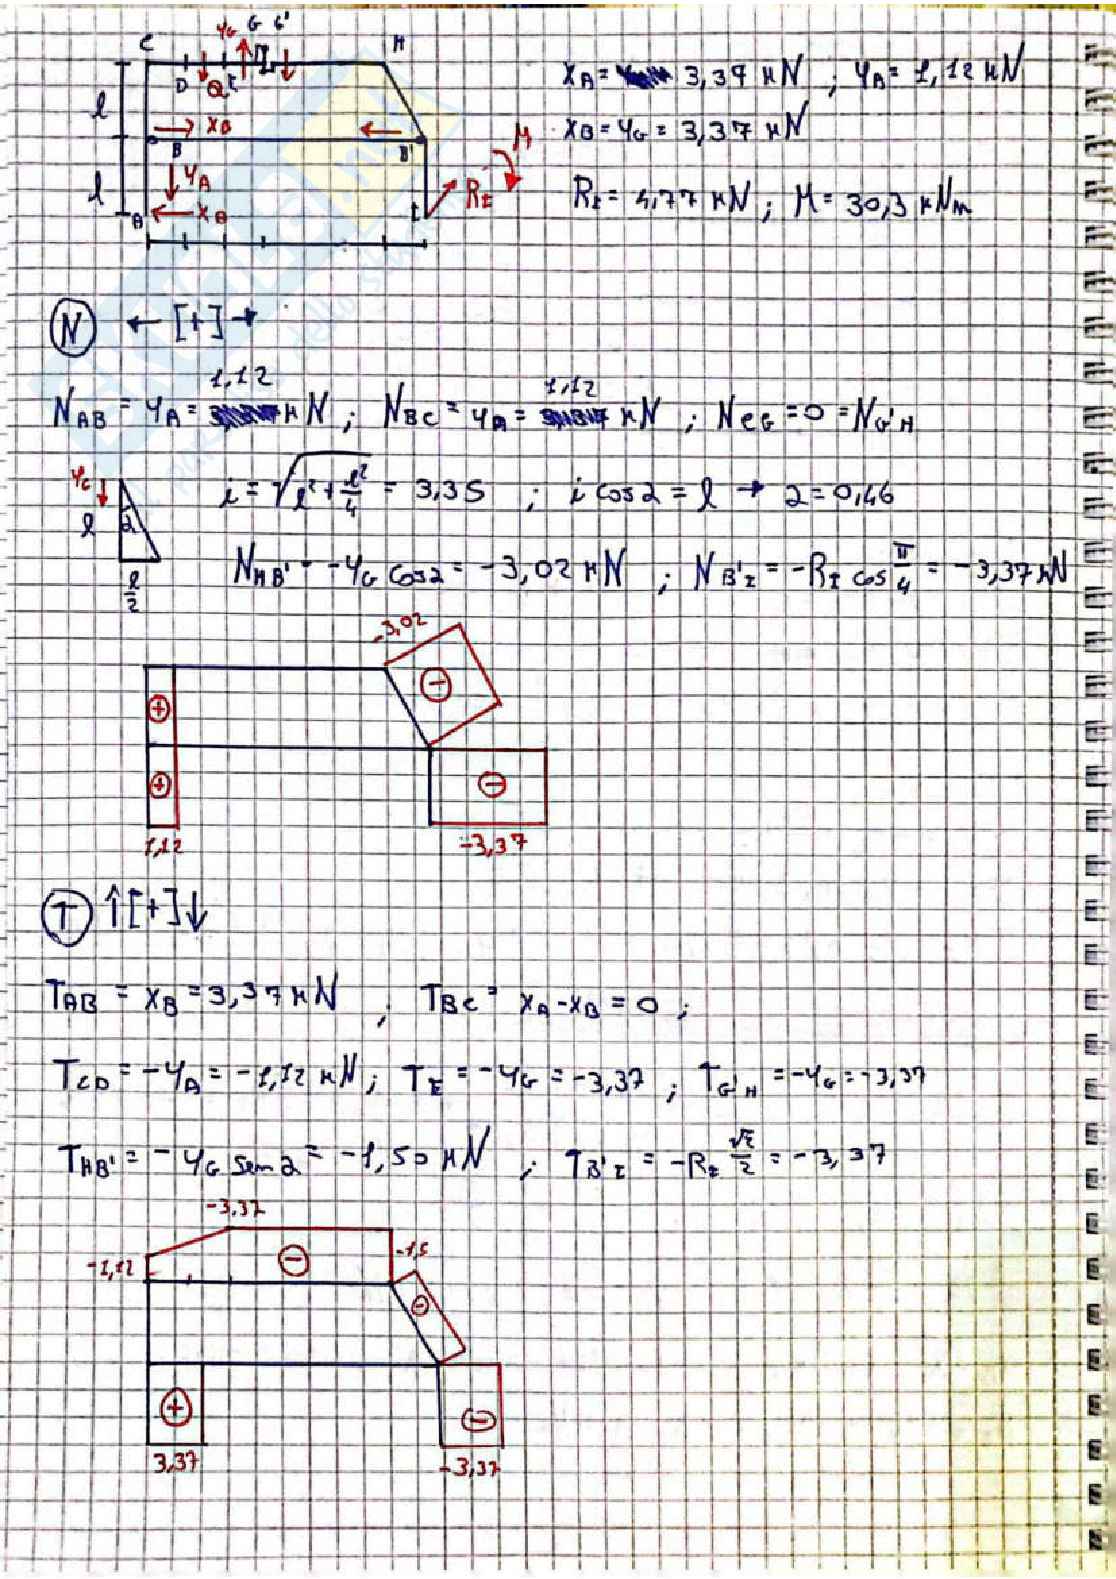 C Y_G G G' H
D Q E
l X_B
B B' M
l Y_A R_I
A X_A I
X_A = 3,37 kN ; Y_A = 1,12 kN
X_B = Y_G = 3,37 kN
R_I = 4,77 kN ; M = 30,3 kNm
N ← [+] →
N_AB = Y_A = 1,12 kN ; N_BC = Y_A = 1,12 kN ; N_CG = 0 = N_G'H
Y_G
l α
l/2
i = √(l² + l²/4) = 3,35 ; i cos α = l → α = 0,46
N_HB' = -Y_G cos α = -3,02 kN ; N_B'I = -R_I cos π/4 = -3,37 kN
-3,02
+ -
+ -
1,12 -3,37
T ↑ [+] ↓
T_AB = X_B = 3,37 kN , T_BC = X_A - X_B = 0 ;
T_CD = -Y_A = -1,12 kN ; T_E = -Y_G = -3,37 ; T_G'H = -Y_G = -3,37
T_HB' = -Y_G sen α = -1,50 kN ; T_B'I = -R_I √2/2 = -3,37
-3,37
-1,12 - -1,5
-
+ -
3,37 -3,37